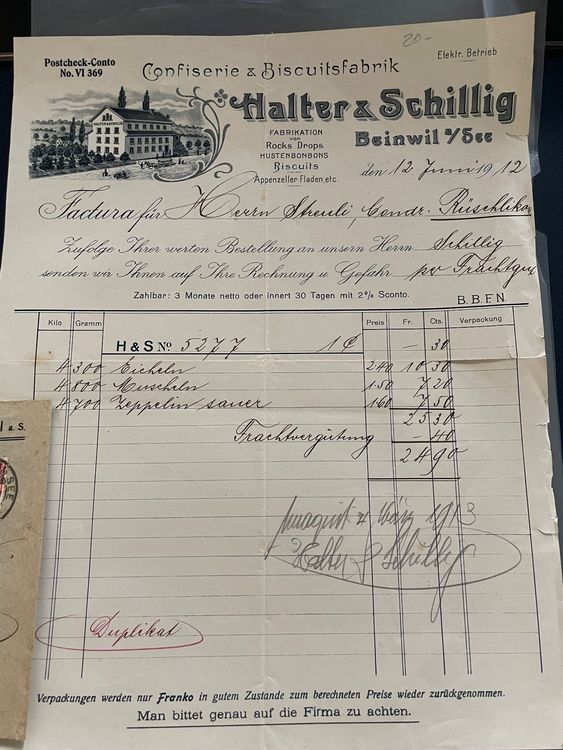 20.-
Postcheck-Conto
No. VI 369
Elektr. Betrieb
Confiserie & Biscuitsfabrik
HALTER & SCHILLIG
Halter & Schillig
Beinwil a/See
FABRIKATION
von
Rocks Drops
HUSTENBONBONS
Biscuits
Appenzeller Fladen, etc.
den 12 Juni 1912
Factura für Herrn Streuli, Condr. Rüschlikon
Zufolge Ihrer werten Bestellung an unsern Herrn Schillig
senden wir Ihnen auf Ihre Rechnung u. Gefahr per Frachtgut
Zahlbar: 3 Monate netto oder innert 30 Tagen mit 2% Sconto.
B.B.F.N.
Kilo Gramm Preis Fr. Cts. Verpackung
H & S No 5277 1 C - 30
4 300 Eicheln 240 10 30
4 800 Muscheln 150 7 20
4 700 Zeppelin sauer 160 7 50
25 30
Frachtvergütung - 40
24 90
März 1913
Halter & Schillig
Duplikat
l a. S.
SEE
Verpackungen werden nur Franko in gutem Zustande zum berechneten Preise wieder zurückgenommen.
Man bittet genau auf die Firma zu achten.